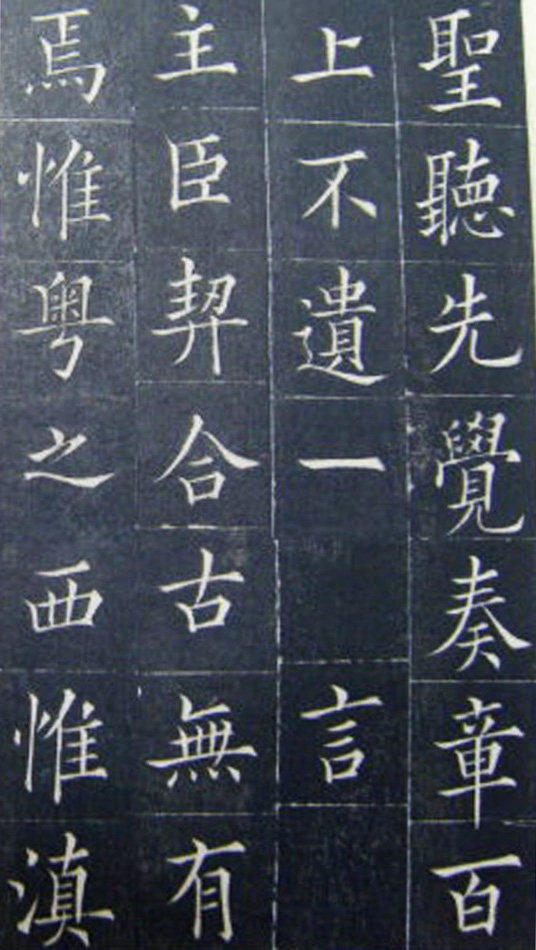 聖聽先覺奏章百
上不遺一言
主臣契合古無有
焉惟粵之西惟滇